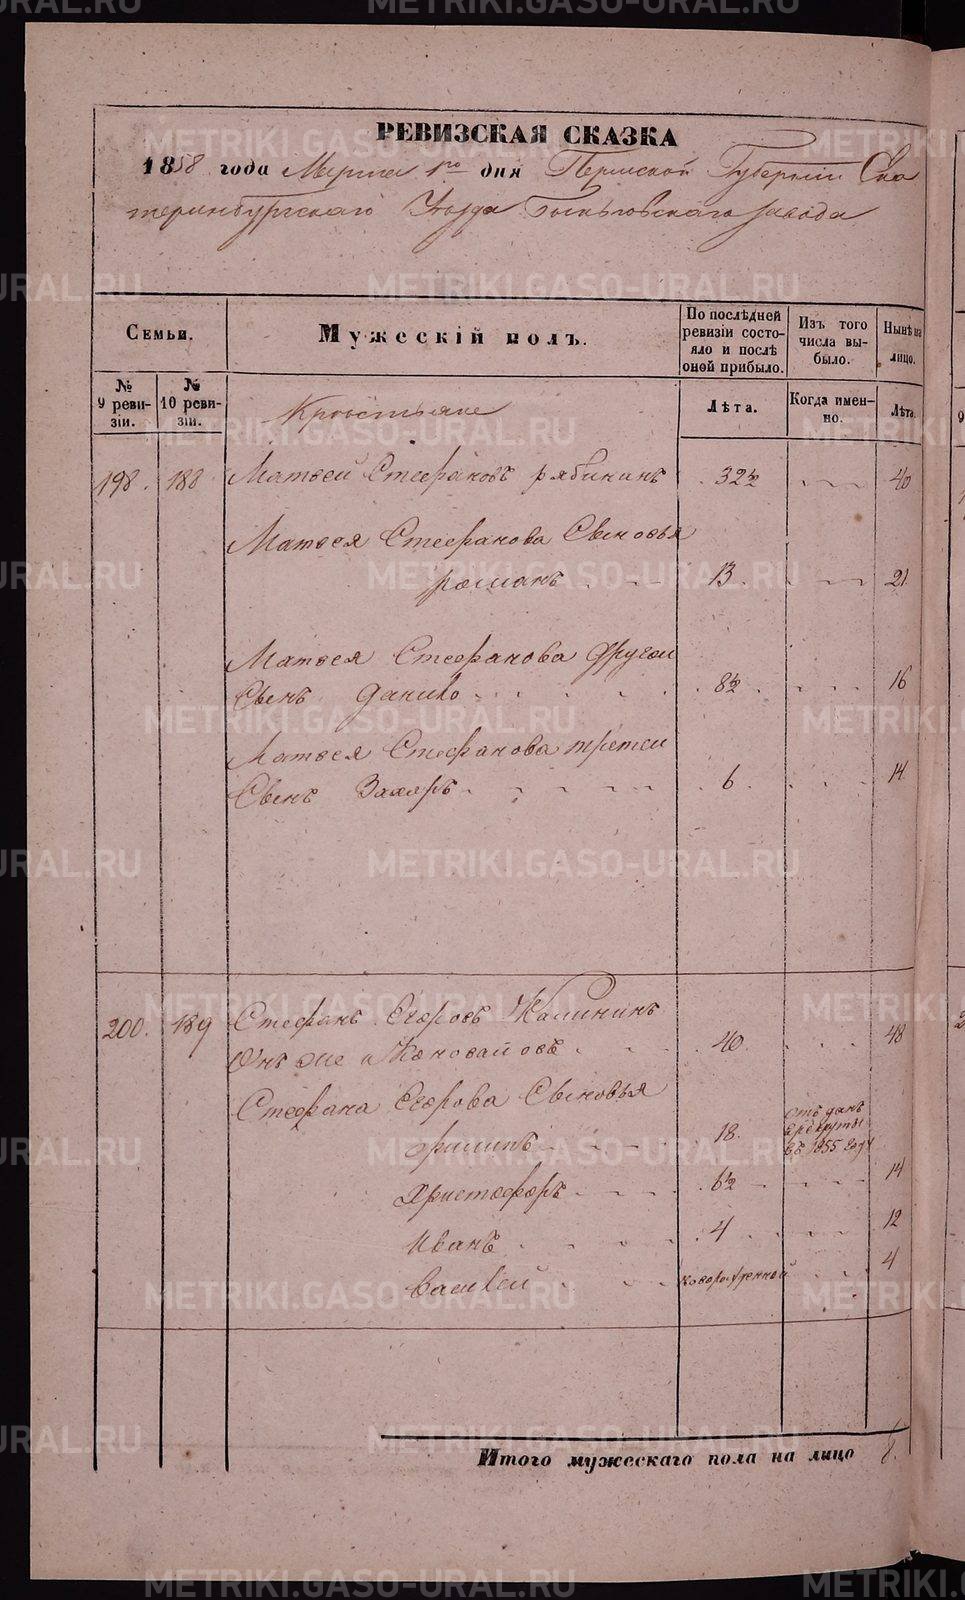 РЕВИЗСКАЯ СКАЗКА
1858 года Марта 1го дня Пермской Губернии Ека
теринбургскаго Уезда завода
Семьи.
Мужескій полъ.
По послѣдней ревизіи состояло и послѣ оной прибыло.
Изъ того числа выбыло.
Нынѣ на лицо.
№ 9 ревизіи.
№ 10 ревизіи.
Лѣта.
Когда именно.
Лѣта.
Крестьяне
198. 188 Матвей Стефановъ рябининъ 32½ 40
Матвея Стефанова Сыновья
романъ 13. 21.
Матвея Стефанова другой
Сынъ данило 8½ 16
Матвея Стефанова третей
Сынъ Захаръ 6. 14
200. 189 Стефанъ Егоровъ Калининъ
Онъ же и Коноваловъ 40. 48
Стефана Егорова Сыновья
филипъ 18. отъ данъ в рекруты въ 1855 году
Христофоръ 6½ 14
Иванъ 4 12
Василей новорожденной 4
Итого мужескаго пола на лицо 8.
METRIKI.GASO-URAL.RU